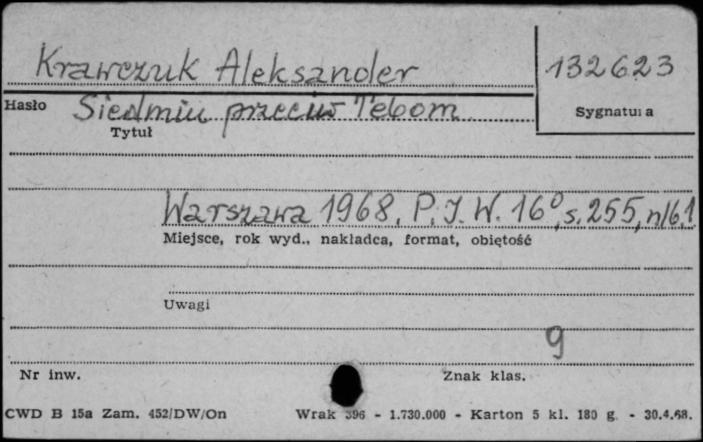 Krawczuk Aleksander
132623
Hasło
Siedmiu przeciw Tebom
Sygnatura
Tytuł
Warszawa 1968, P.I.W. 16°, s. 255, nlb, 1
Miejsce, rok wyd., nakładca, format, objętość
Uwagi
9
Nr inw.
Znak klas.
CWD B 15a Zam. 452/DW/On
Wrak 396 - 1.730.000 - Karton 5 kl. 180 g. - 30.4.68.